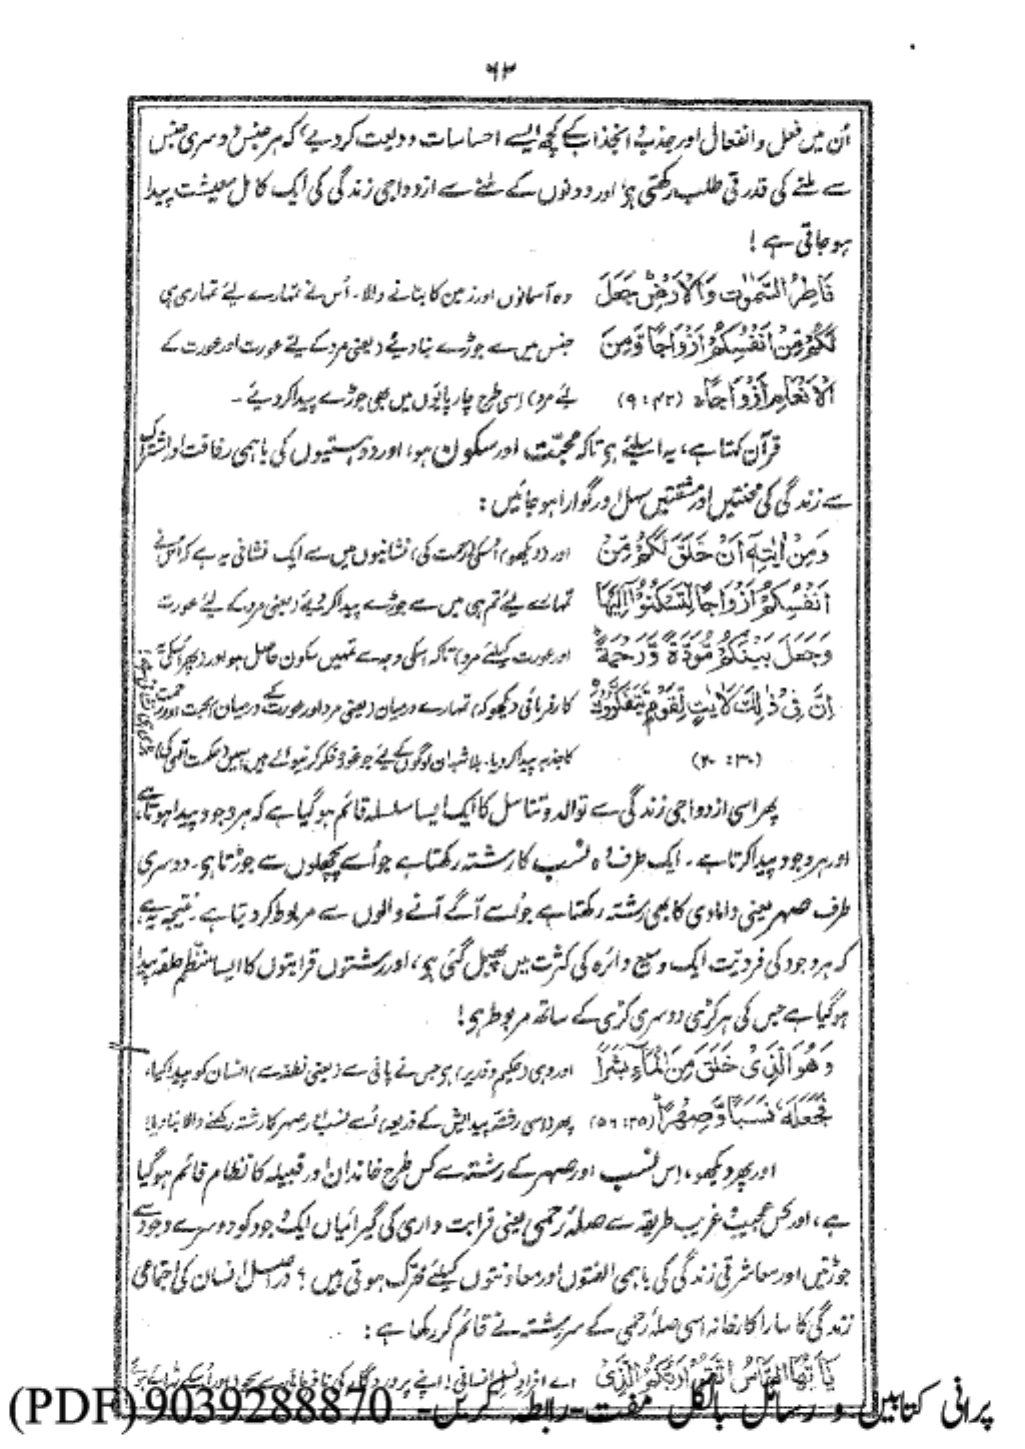 ۶۳
اُن میں فعل و انفعال اور جذب و انجذاب کے کچھ ایسے احساسات ودیعت کر دیے، کہ ہر جنس دوسری جنس
سے ملنے کی قدرتی طلب رکھتی ہے، اور دونوں کے ملنے سے ازدواجی زندگی کی ایک کامل معیشت پیدا
ہو جاتی ہے!
فَاطِرُ السَّمٰوٰتِ وَالْاَرْضِ جَعَلَ وہ آسمانوں اور زمین کا بنانے والا۔ اُس نے تمہارے لیے تمہاری ہی
لَكُمْ مِّنْ اَنْفُسِكُمْ اَزْوَاجًا وَّمِنَ جنس میں سے جوڑے بنا دیے (یعنی مرد کے لیے عورت اور عورت کے
الْاَنْعَامِ اَزْوَاجًا (۴۲:۹) لیے مرد) اسی طرح چارپایوں میں بھی جوڑے پیدا کر دیے۔
قرآن کہتا ہے، یہ اسلیے ہے تاکہ محبّت اور سکون ہو، اور دو ہستیوں کی باہمی رفاقت و اشتراک
سے زندگی کی محنتیں اور مشقتیں سہل اور گوارا ہو جائیں:
وَمِنْ اٰيٰتِهٖٓ اَنْ خَلَقَ لَكُمْ مِّنْ اور (دیکھو) اُسکی (رحمت کی) نشانیوں میں سے ایک نشانی یہ ہے کہ اُس نے
اَنْفُسِكُمْ اَزْوَاجًا لِّتَسْكُنُوْٓا اِلَيْهَا تمہارے لیے تم ہی میں سے جوڑے پیدا کر دیے (یعنی مرد کے لیے عورت
وَجَعَلَ بَيْنَكُمْ مَّوَدَّةً وَّرَحْمَةً اور عورت کیلئے مرد) تاکہ اسکی وجہ سے تمہیں سکون حاصل ہو اور (پھر اُسکی
اِنَّ فِيْ ذٰلِكَ لَاٰيٰتٍ لِّقَوْمٍ يَّتَفَكَّرُوْنَ کارفرمائی دیکھو کہ) تمہارے درمیان (یعنی مرد اور عورت کے درمیان) محبت اور رحمت
(۳۰:۲۰) کا جذبہ پیدا کر دیا۔ بلاشبہ ان لوگوں کے لیے جو غور و فکر کرنیوالے ہیں، اس میں (حکمت الٰہی کی)
پھر اسی ازدواجی زندگی سے توالد و تناسل کا ایک ایسا سلسلہ قائم ہو گیا ہے کہ ہر وجود پیدا ہوتا ہے،
اور ہر وجود پیدا کرتا ہے۔ ایک طرف وہ نسب کا رشتہ رکھتا ہے جو اُسے پچھلوں سے جوڑتا ہے۔ دوسری
طرف صہر یعنی دامادی کا بھی رشتہ رکھتا ہے جو اُسے آگے آنے والوں سے مربوط کر دیتا ہے۔ نتیجہ یہ ہے
کہ ہر وجود کی فردیّت ایک وسیع دائرہ کی کثرت میں پھیل گئی ہے، اور رشتوں قرابتوں کا ایسا منظّم حلقہ پیدا
ہو گیا ہے جس کی ہر کڑی دوسری کڑی کے ساتھ مربوط ہے!
وَهُوَ الَّذِيْ خَلَقَ مِنَ الْمَآءِ بَشَرًا اور وہی (حکیم و قدیر) ہے جس نے پانی سے (یعنی نطفہ سے) انسان کو پیدا کیا،
فَجَعَلَهٗ نَسَبًا وَّصِهْرًا (۲۵:۵۶) پھر (اسی رشتۂ پیدایش کے ذریعہ) اُسے نسب اور صہر کا رشتہ رکھنے والا بنا دیا!
اور پھر دیکھو، اس نسب اور صہر کے رشتہ سے کس طرح خاندان اور قبیلہ کا نظام قائم ہو گیا
ہے، اور کس عجیب و غریب طریقہ سے صلۂ رحمی یعنی قرابت داری کی گیرائیاں ایک وجود کو دوسرے وجود سے
جوڑتیں اور معاشرتی زندگی کی باہمی الفتوں اور معاونتوں کیلئے محرّک ہوتی ہیں؟ دراصل انسان کی اجتماعی
زندگی کا سارا کارخانہ اسی صلۂ رحمی کے سررشتہ نے قائم کر رکھا ہے:
يٰٓاَيُّهَا النَّاسُ اتَّقُوْا رَبَّكُمُ الَّذِيْ اے افرادِ نسلِ انسانی! اپنے پروردگار کی نافرمانی سے بچو
پرانی کتابیں و رسائل بالکل مفت-رابطہ کریں- 9039288870(PDF)